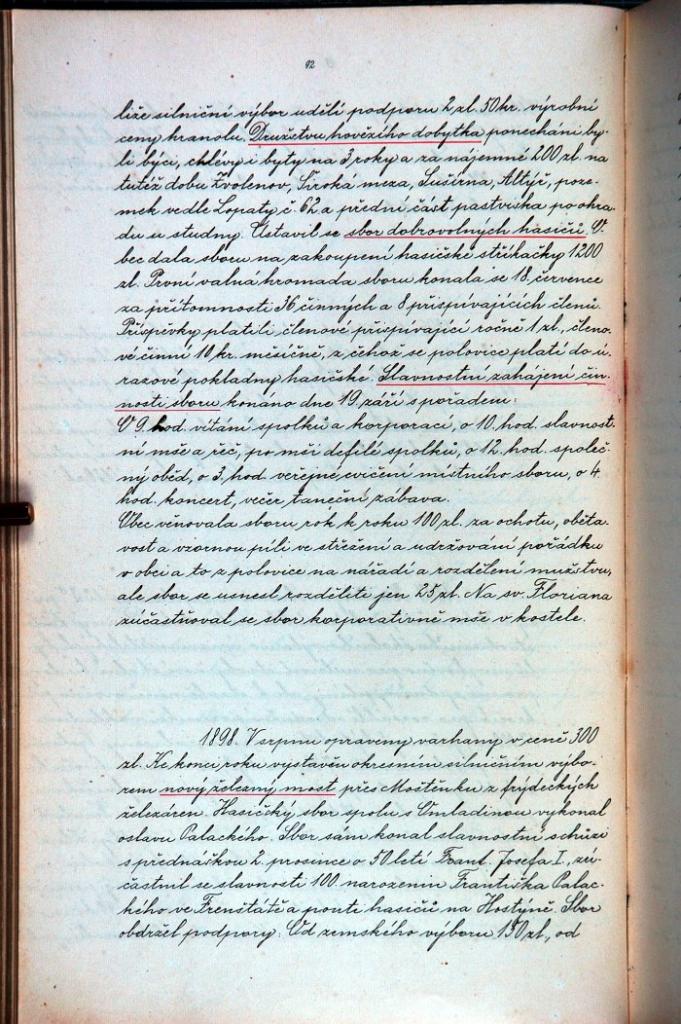 92
liže silniční výbor udělí podporu 2 zl. 50 kr. výrobní
ceny hranolu. Družstvu hovězího dobytka ponecháni by-
li býci, chlévy i byty na 3 roky a za nájemné 200 zl. na
tutéž dobu Zvolenov, Široká meza, Sušírna, Altýř, poze-
mek vedle Lopaty č. 62 a přední část pastviska po ohra-
du u studny. Ustavil se sbor dobrovolných hasičů. O-
bec dala sboru na zakoupení hasičské stříkačky 1200
zl. První valná hromada sboru konala se 18. července
za přítomnosti 36 činných a 8 přispívajících členů.
Příspěvky platili členové přispívající ročně 1 zl., členo-
vé činní 10 kr. měsíčně, z čehož se polovice platí do ú-
razové pokladny hasičské. Slavnostní zahájení čin-
nosti sboru konáno dne 19. září s pořadem:
O 9. hod. vítání spolků a korporací, o 10. hod. slavnost-
ní mše a řeč, po mši defilé spolků, o 12. hod. společ-
ný oběd, o 3. hod. veřejné cvičení místního sboru, o 4.
hod. koncert, večer taneční zábava.
Obec věnovala sboru rok k roku 100 zl. za ochotu, oběta-
vost a vzornou píli ve střežení a udržování pořádku
v obci a to z polovice na nářadí a rozdělení mužstvu,
ale sbor se usnesl rozděliti jen 25 zl. Na sv. Floriana
zúčastňoval se sbor korporativně mše v kostele.
1898. V srpnu opraveny varhany v ceně 300
zl. Ke konci roku vystavěn okresním silničním výbo-
rem nový železný most přes Moštěnku z frýdeckých
železáren. Hasičský sbor spolu s Omladinou vykonal
oslavu Palackého. Sbor sám konal slavnostní schůzi
s přednáškou 2. prosince o 50 letí Frant. Josefa I., zú-
častnil se slavnosti 100. narozenin Františka Palac-
kého ve Frenštátě a pouti hasičů na Hostýně. Sbor
obdržel podpory: Od zemského výboru 150 zl., od